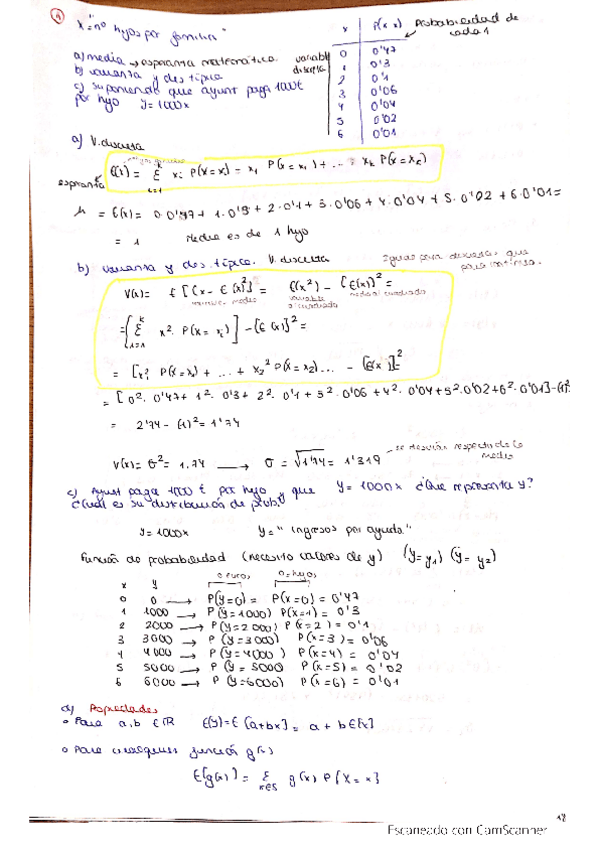 x="nº hijos por familia"
a) media → esperanza matemática.
b) varianza y des típica
c) suponiendo que ayunt paga 1000€
por hijo y=1000x
variable discreta
x P(X=x) → Probabilidad de cada 1
0 0'47
1 0'3
2 0'1
3 0'06
4 0'04
5 0'02
6 0'01
a) V. discreta
E(x) = Σ xi P(X=xi) = x1 P(X=x1) + ... + xk P(X=xk)
esperanza
μ = E(x) = 0·0'47 + 1·0'3 + 2·0'1 + 3·0'06 + 4·0'04 + 5·0'02 + 6·0'01 =
= 1 Media es de 1 hijo
b) varianza y des típica. V. discreta
V(x) = E[(x - E(x))²] = E(x²) - [E(x)]² =
variable al cuadrado
media al cuadrado
= [Σ x² · P(X=xi)] - [E(x)]² =
= [x1² P(X=x1) + ... + x2² P(X=x2) ... - [E(x)]²
= [0²·0'47 + 1²·0'3 + 2²·0'1 + 3²·0'06 + 4²·0'04 + 5²·0'02 + 6²·0'01] - (1)²
= 2'74 - (1)² = 1'74
V(x) = σ² = 1.74 → σ = √1'74 = 1'319 → se desvían respecto de la media
c) Ayunt paga 1000 € por hijo y que y=1000x ¿Que representa y?
¿Cuál es su distribución de prob?
y=1000x y="ingresos por ayuda"
Función de probabilidad (necesito valores de y) (y=y1) (y=y2)
x y
0 0 → P(y=0) = P(x=0) = 0'47
1 1000 → P(y=1000) P(x=1) = 0'3
2 2000 → P(y=2000) P(x=2) = 0'1
3 3000 → P(y=3000) P(x=3) = 0'06
4 4000 → P(y=4000) P(x=4) = 0'04
5 5000 → P(y=5000 P(x=5) = 0'02
6 6000 → P(y=6000) P(x=6) = 0'01
d) Propiedades
o Para a,b ∈ ℝ E(y) = E[a+bx] = a + bE[x]
o Para cualquier función g(x)
E[g(x)] = Σ g(x) P[X=x]
x∈S
18
Escaneado con CamScanner